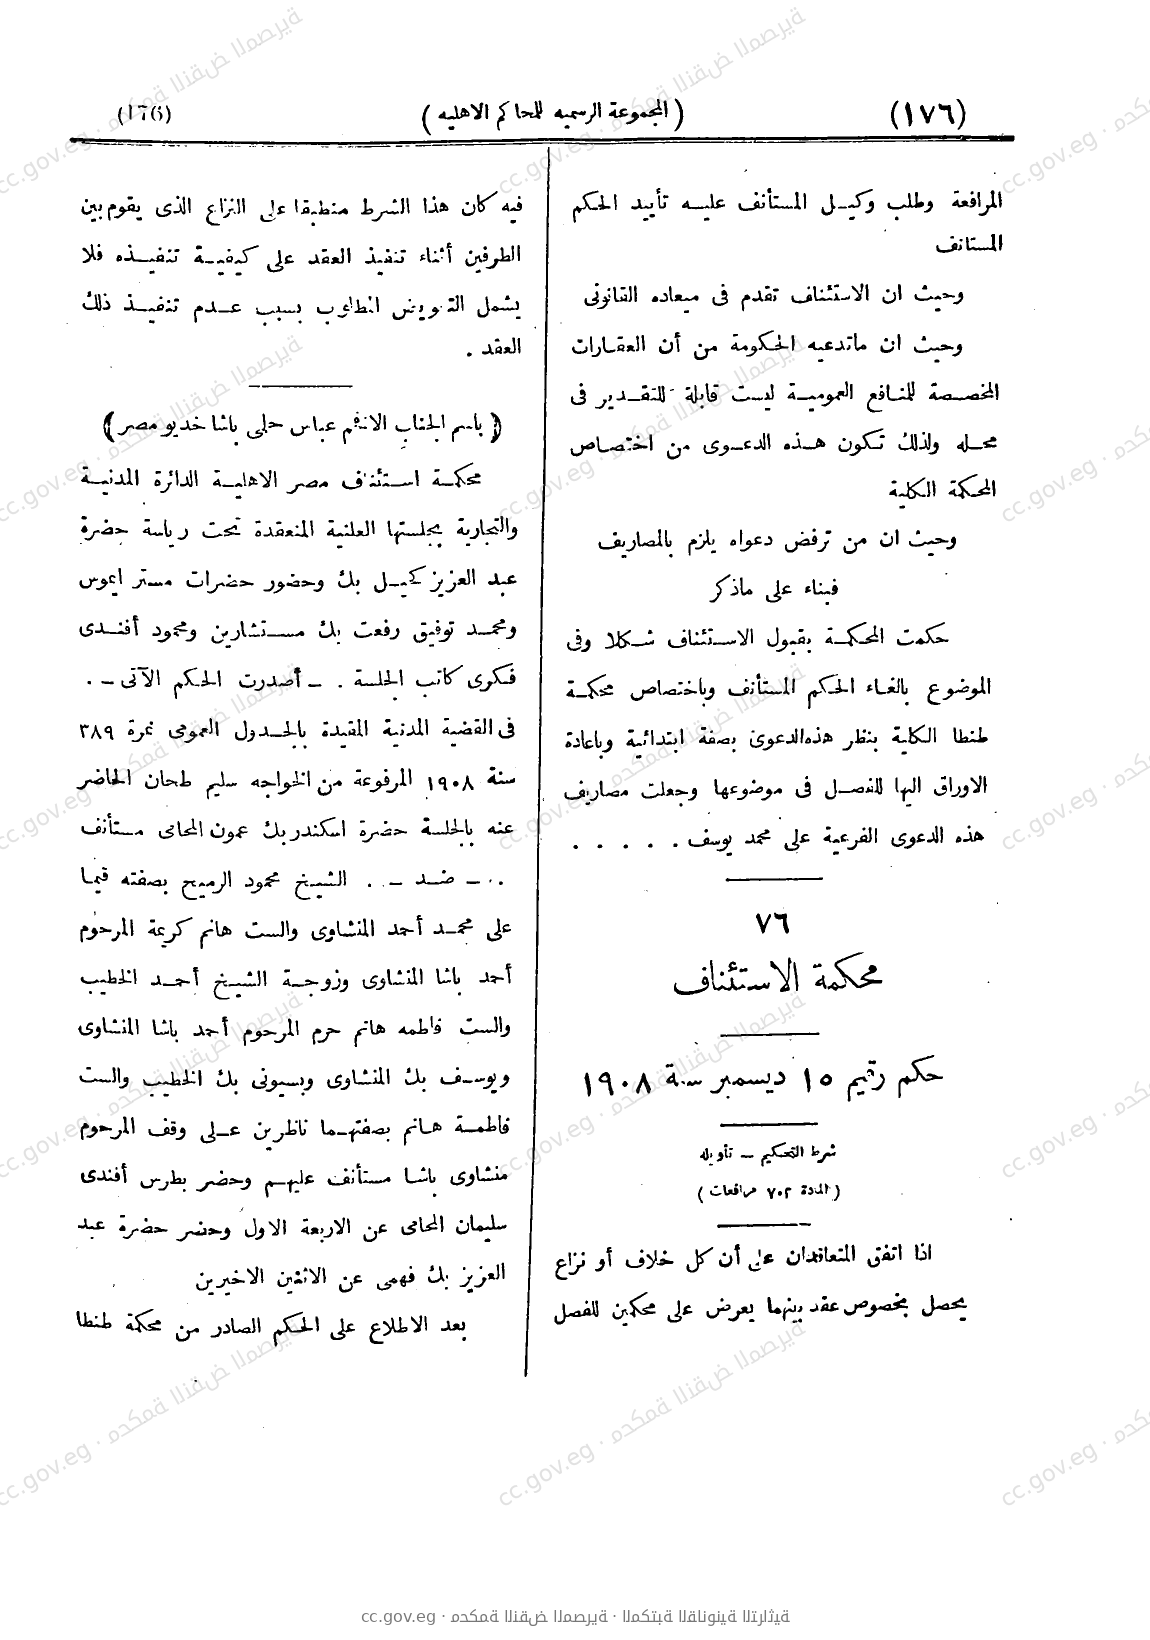 (١٧٦)
(المجموعة الرسميه للمحاكم الاهليه)
(176)
المرافعة وطلب وكيل المستأنف عليه تأييد الحكم
المستانف
وحيث ان الاستئناف تقدم فى ميعاده القانونى
وحيث ان ماتدعيه الحكومة من أن العقارات
المخصصة للمنافع العمومية ليست قابلة للتقدير فى
محله ولذلك تكون هذه الدعوى من اختصاص
المحكمة الكلية
وحيث ان من ترفض دعواه يلزم بالمصاريف
فبناء على ماذكر
حكمت المحكمة بقبول الاستئناف شكلا وفى
الموضوع بالغاء الحكم المستأنف وباختصاص محكمة
طنطا الكلية بنظر هذه الدعوى بصفة ابتدائية وباعادة
الاوراق اليها للفصل فى موضوعها وجعلت مصاريف
هذه الدعوى الفرعية على محمد يوسف . . . . .
٧٦
محكمة الاستئناف
حكم رقيم ١٥ ديسمبر سنة ١٩٠٨
شرط التحكيم – تأويله
(المادة ٧٠٢ مرافعات)
اذا اتفق المتعاقدان على أن كل خلاف أو نزاع
يحصل بخصوص عقد بينهما يعرض على محكمين للفصل
فيه كان هذا الشرط منطبقا على النزاع الذى يقوم بين
الطرفين أثناء تنفيذ العقد على كيفية تنفيذه فلا
يشمل التعويض المطلوب بسبب عدم تنفيذ ذلك
العقد .
(باسم الجناب الافخم عباس حلمى باشا خديو مصر)
محكمة استئناف مصر الاهلية الدائرة المدنية
والتجارية بجلستها العلنية المنعقدة تحت رياسة حضرة
عبد العزيز كحيل بك وحضور حضرات مستر ايموس
ومحمد توفيق رفعت بك مستشارين ومحمود أفندى
فكرى كاتب الجلسة . – أصدرت الحكم الآتى – .
فى القضية المدنية المقيدة بالجدول العمومى نمرة ٣٨٩
سنة ١٩٠٨ المرفوعة من الخواجه سليم طحان الحاضر
عنه بالجلسة حضرة اسكندر بك عمون المحامى مستأنف
. – ضد – . الشيخ محمود الرميح بصفته قيما
على محمد أحمد المنشاوى والست هانم كريمة المرحوم
أحمد باشا المنشاوى وزوجة الشيخ أحمد الخطيب
والست فاطمه هانم حرم المرحوم أحمد باشا المنشاوى
ويوسف بك المنشاوى وبسيونى بك الخطيب والست
فاطمة هانم بصفتهما ناظرين على وقف المرحوم
منشاوى باشا مستأنف عليهم وحضر بطرس أفندى
سليمان المحامى عن الاربعة الاول وحضر حضرة عبد
العزيز بك فهمى عن الاثنين الاخيرين
بعد الاطلاع على الحكم الصادر من محكمة طنطا
cc.gov.eg · محكمة النقض المصرية · المكتبة القانونية التراثية